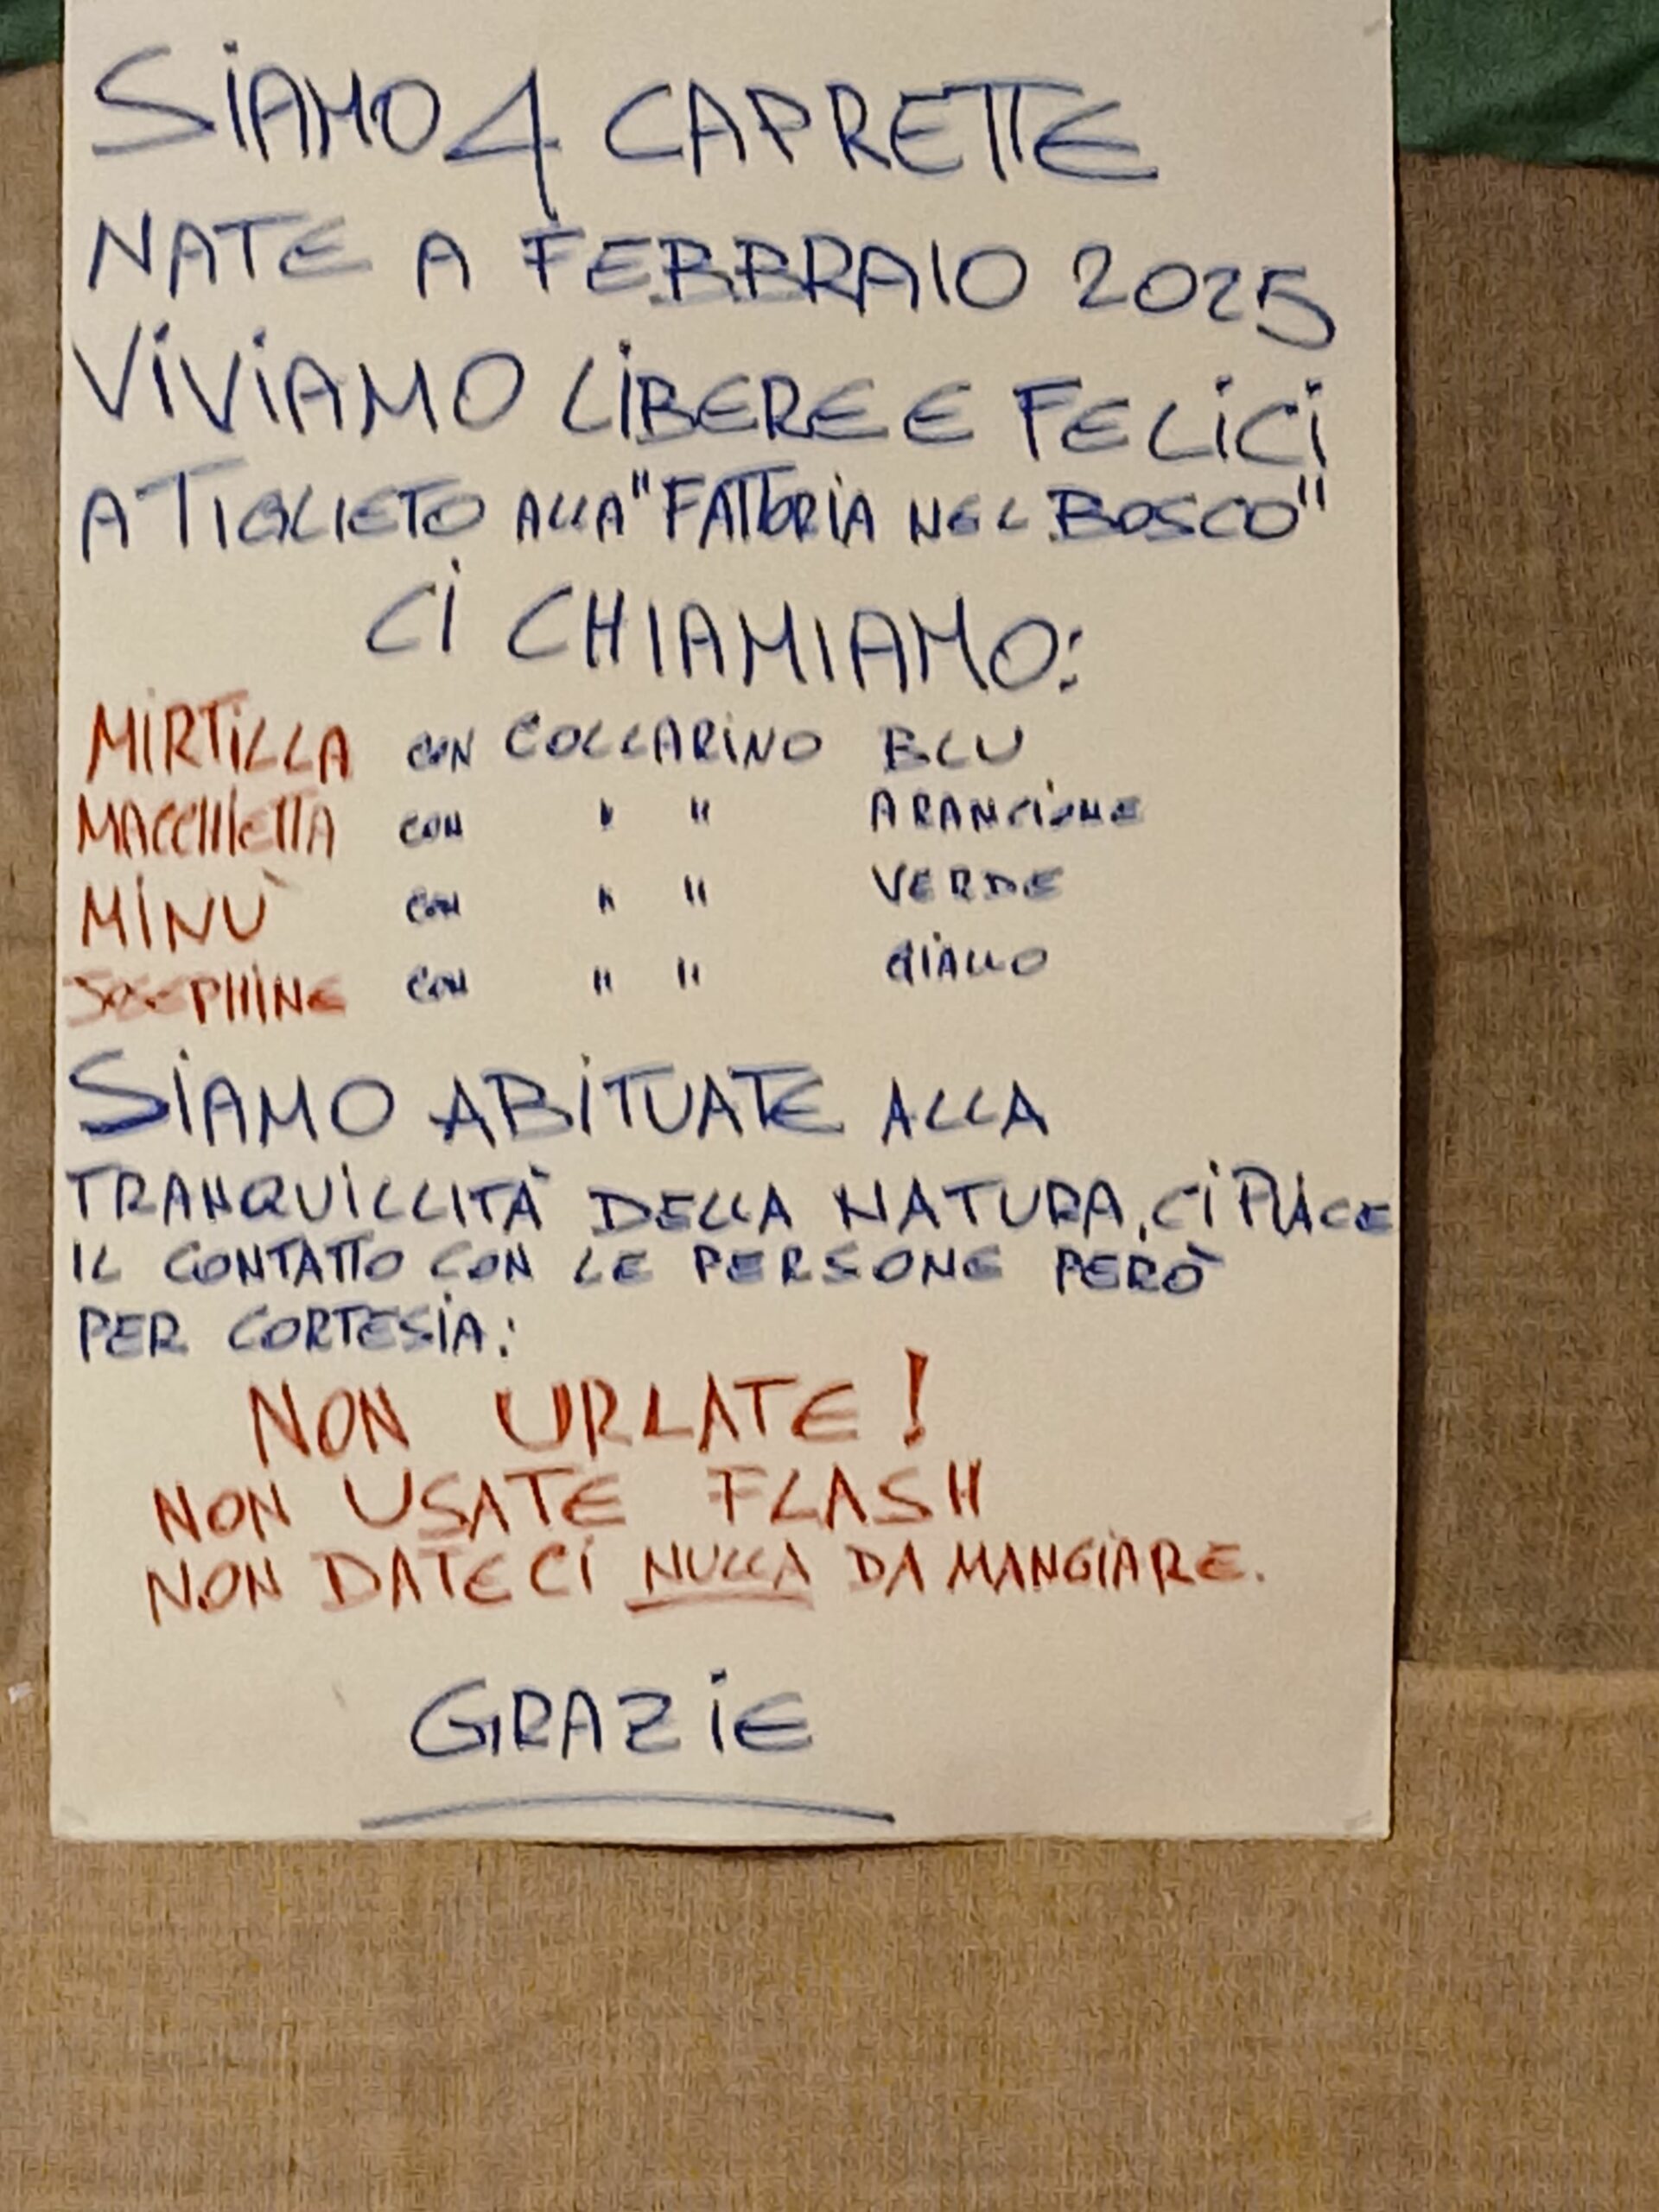 SiAMO 4 CAPRETTE
NATE A FEBBRAIO 2025
ViViAMO LiBERE E FELiCi
A TIGLIETO ALLA "FATTORIA NEL BOSCO"
Ci CHIAMIAMO:
MiRTiLLA CON COLLARiNO BLU
MACCHIETTA CON " " ARANCiONE
MiNÙ CON " " VERDE
JOSEPHINE CON " " GiALLO
SiAMO ABiTUATE ALLA
TRANQUiLLITÀ DELLA NATURA, Ci PIACE
IL CONTATTO CON LE PERSONE PERÒ
PER CORTESiA:
NON URLATE!
NON USATE FLASH
NON DATECi NULLA DA MANGiARE.
GRAZiE